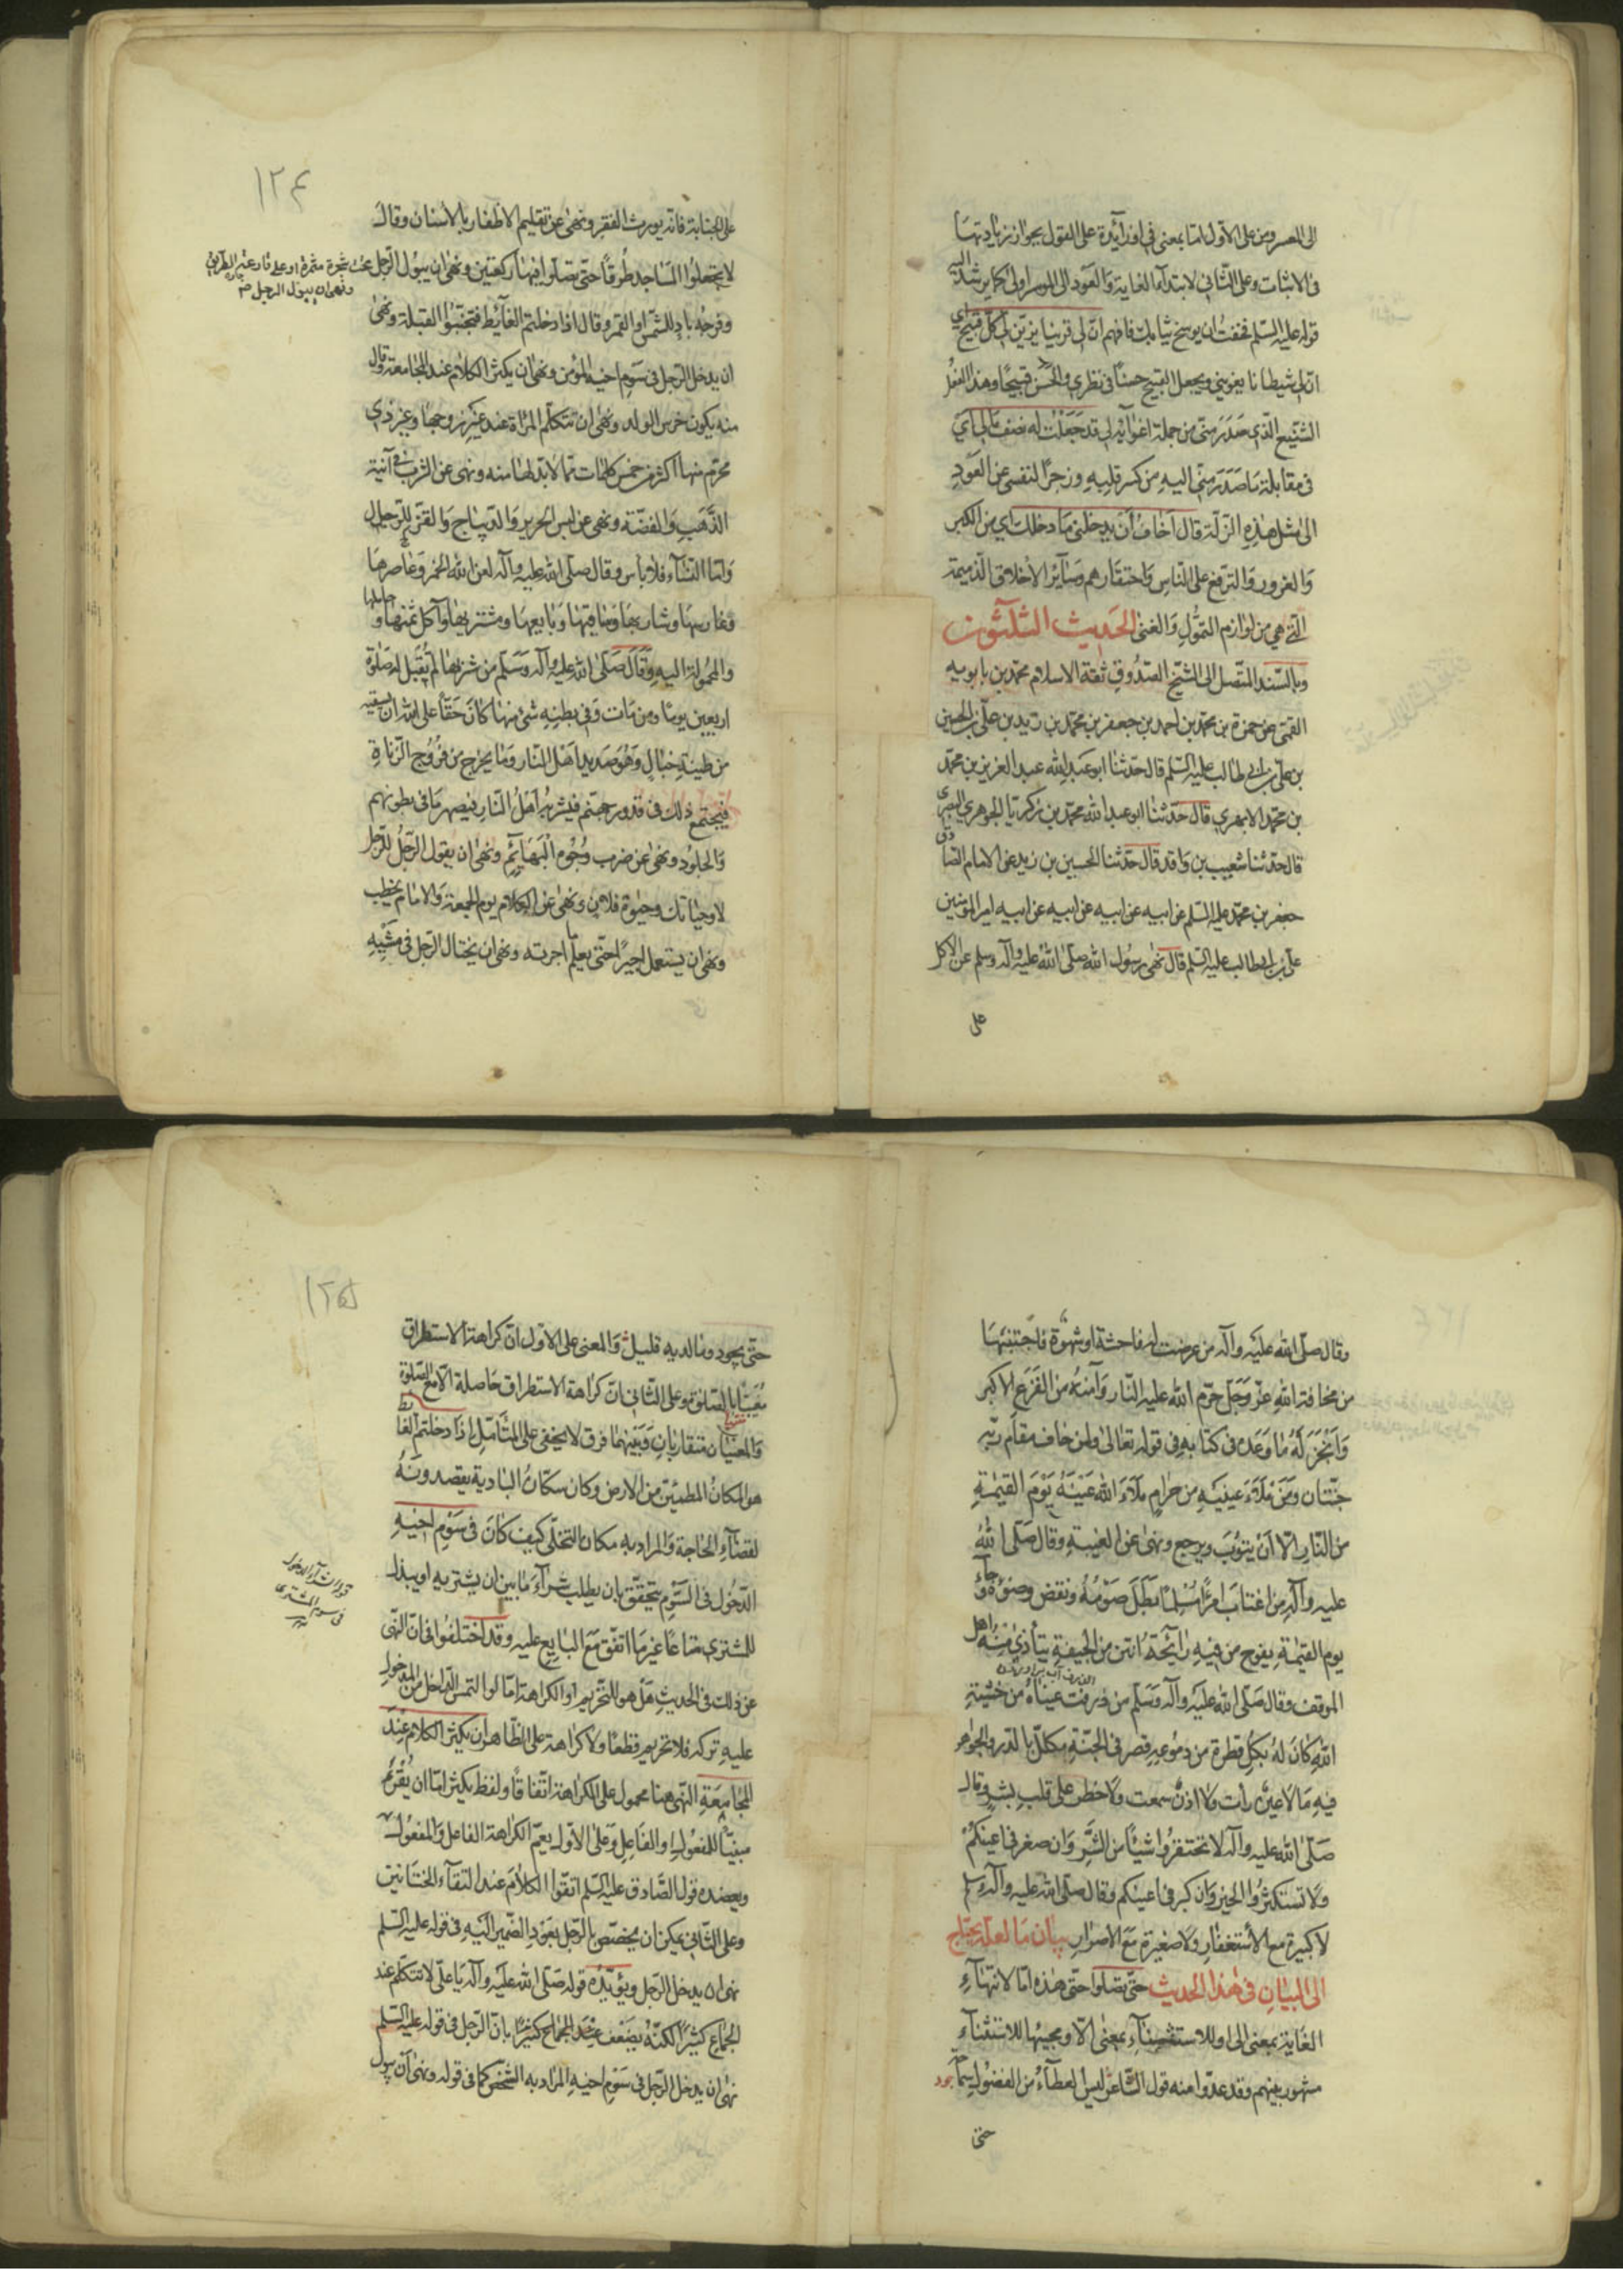 الى المعسر ومن على الاول اما بمعنى في او زائدة على القول بجواز زيادتها
في الاثبات وعلى الثاني لابتداء الغاية والعود الى الموسر اولى كما يرشد اليه
قوله عليه السلم فخفت ان يوسخ ثيابك فافهم ان لي قرينا يزين لي كل قبيح اي
ان لي شيطانا يغويني ويجعل القبيح حسنا في نظري والحسن قبيحا وهذا الفعل
الشنيع الذي صدر مني من جملة اغوائه لي قد جعلت له نصف مالي اي
في مقابلة ما صدر مني اليه من كسر قلبه وزجرا لنفسي عن العود
الى مثل هذه الزلة قال اخاف ان يدخلني ما دخلك اي من الكبر
والغرور والترفع على الناس واحتقارهم وسائر الاخلاق الذميمة
التي هي من لوازم التمول والغنى الحديث الثلثون
وبالسند المتصل الى الشيخ الصدوق ثقة الاسلام محمد بن بابويه
القمي عن حمزة بن محمد بن احمد بن جعفر بن محمد بن زيد بن علي بن الحسين
بن علي بن ابي طالب عليه السلم قال حدثنا ابو عبد الله عبد العزيز بن محمد
بن محمد الابهري قال حدثنا ابو عبد الله محمد بن زكريا الجوهري البصري
قال حدثنا شعيب بن واقد قال حدثنا الحسين بن زيد عن الامام الصادق
جعفر بن محمد عليه السلم عن ابيه عن ابيه عن ابيه عن ابيه امير المؤمنين
علي بن ابيطالب عليه السلم قال نهى رسول الله صلى الله عليه وآله وسلم عن الاكل
على
١٢٤
على الجنابة فانه يورث الفقر ونهى عن تقليم الاظفار بالاسنان وقال
لا تجعلوا المساجد طرقا حتى تصلوا فيها ركعتين ونهى ان يبول الرجل
تحت شجرة مثمرة او على قارعة الطريق
ونهى ان يبول الرجل صح
وفرجه باد للشمس او القمر وقال اذا دخلتم الغائط فتجنبوا القبلة ونهى
ان يدخل الرجل في سوم اخيه المؤمن ونهى ان يكثر الكلام عند المجامعة وقال
منه يكون خرس الولد ونهى ان تتكلم المرأة عند غير زوجها وغير ذي
محرم منها اكثر من خمس كلمات مما لا بد لها منه ونهى عن الشرب في آنية
الذهب والفضة ونهى عن لبس الحرير والديباج والقز للرجال
واما النساء فلا باس وقال صلى الله عليه وآله لعن الله الخمر وعاصرها
وغارسها وشاربها وساقيها وبايعها ومشتريها وآكل ثمنها وحاملها
والمحمولة اليه وقال صلى الله عليه وآله وسلم من شربها لم يقبل له صلوة
اربعين يوما ومن مات وفي بطنه شئ منها كان حقا على الله ان يسقيه
من طينة خبال وهو صديد اهل النار وما يخرج من فروج الزناة
فيجتمع ذلك في قدور جهنم فيشربه اهل النار فيصهر ما في بطونهم
والجلود ونهى عن ضرب وجوه البهائم ونهى ان يقول الرجل للرجل
لا وحياتك وحيوة فلان ونهى عن الكلام يوم الجمعة والامام يخطب
ونهى ان يستعمل اجيرا حتى يعلم ما اجرته ونهى ان يختال الرجل في مشيه
وقال صلى الله عليه وآله من عرضت له فاحشة او شهوة فاجتنبها
من مخافة الله عز وجل حرم الله عليه النار وآمنه من الفزع الاكبر
وانجز له ما وعده في كتابه في قوله تعالى ولمن خاف مقام ربه
جنتان ومن ملاء عينيه من حرام ملاء الله عينه يوم القيمة
من النار الا ان يتوب ويرجع ونهى عن الغيبة وقال صلى الله
عليه وآله من اغتاب امرأ مسلما بطل صومه ونقض وضوءه وجاء
يوم القيمة يفوح من فيه رائحة انتن من الجيفة يتأذى منه اهل
الموقف وقال صلى الله عليه وآله وسلم من ذرفت عيناه من خشية
الله كان له بكل قطرة من دموعه قصر في الجنة مكلل بالدر والجوهر
فيه ما لا عين رأت ولا اذن سمعت ولا خطر على قلب بشر وقال
صلى الله عليه وآله لا تحتقروا شيئا من الشر وان صغر في اعينكم
ولا تستكثروا الخير وان كبر في اعينكم وقال صلى الله عليه وآله وسلم
لا كبيرة مع الاستغفار ولا صغيرة مع الاصرار بيان ما لعله يحتاج
الى البيان في هذا الحديث حتى تصلوا حتى هذه اما لانتهاء
الغاية بمعنى الى او للاستثناء بمعنى الا ومجيئها للاستثناء
مشهور بينهم وقد عدوا منه قول الشاعر ليس العطاء من الفضول سماحة
حتى
١٢٥
حتى يجود وما لديه قليل والمعنى على الاول ان كراهة الاستطراق
مغياة بالصلوة وعلى الثاني ان كراهة الاستطراق حاصلة الا مع الصلوة
والمعنيان متقاربان وبينهما فرق لا يخفى على المتأمل اذا دخلتم الغائط
هو المكان المطمئن من الارض وكان سكان البادية يقصدونه
لقضاء الحاجة والمراد به مكان التخلي كيف كان في سوم اخيه
الدخول في السوم يتحقق بان يطلب شراء ما يريد ان يشتريه او يبذل
للمشتري متاعا غير ما اتفق مع البايع عليه وقد اختلفوا في ان النهي
عن ذلك في الحديث هل هو للتحريم او الكراهة اما لو التمس الداخل من المدخول
عليه تركه فلا تحريم قطعا ولا كراهة على الظاهر ان يكثر الكلام عند
المجامعة النهي هنا محمول على الكراهة اتفاقا ولفظ يكثر اما ان يقرء
مبنيا للمفعول او الفاعل وعلى الاول يعم الكراهة الفاعل والمفعول
ويعضده قول الصادق عليه السلم اتقوا الكلام عند التقاء الختانين
وعلى الثاني يمكن ان يخصص بالرجل بعود الضمير اليه في قوله عليه السلم
نهى ان يدخل الرجل ويؤيده قوله صلى الله عليه وآله يا علي لا تتكلم عند
الجماع كثيرا لكنه يضعف بان الرجل في قوله عليه السلم
نهى ان يدخل الرجل في سوم اخيه المراد به الشخص كما في قوله ونهى ان يبول